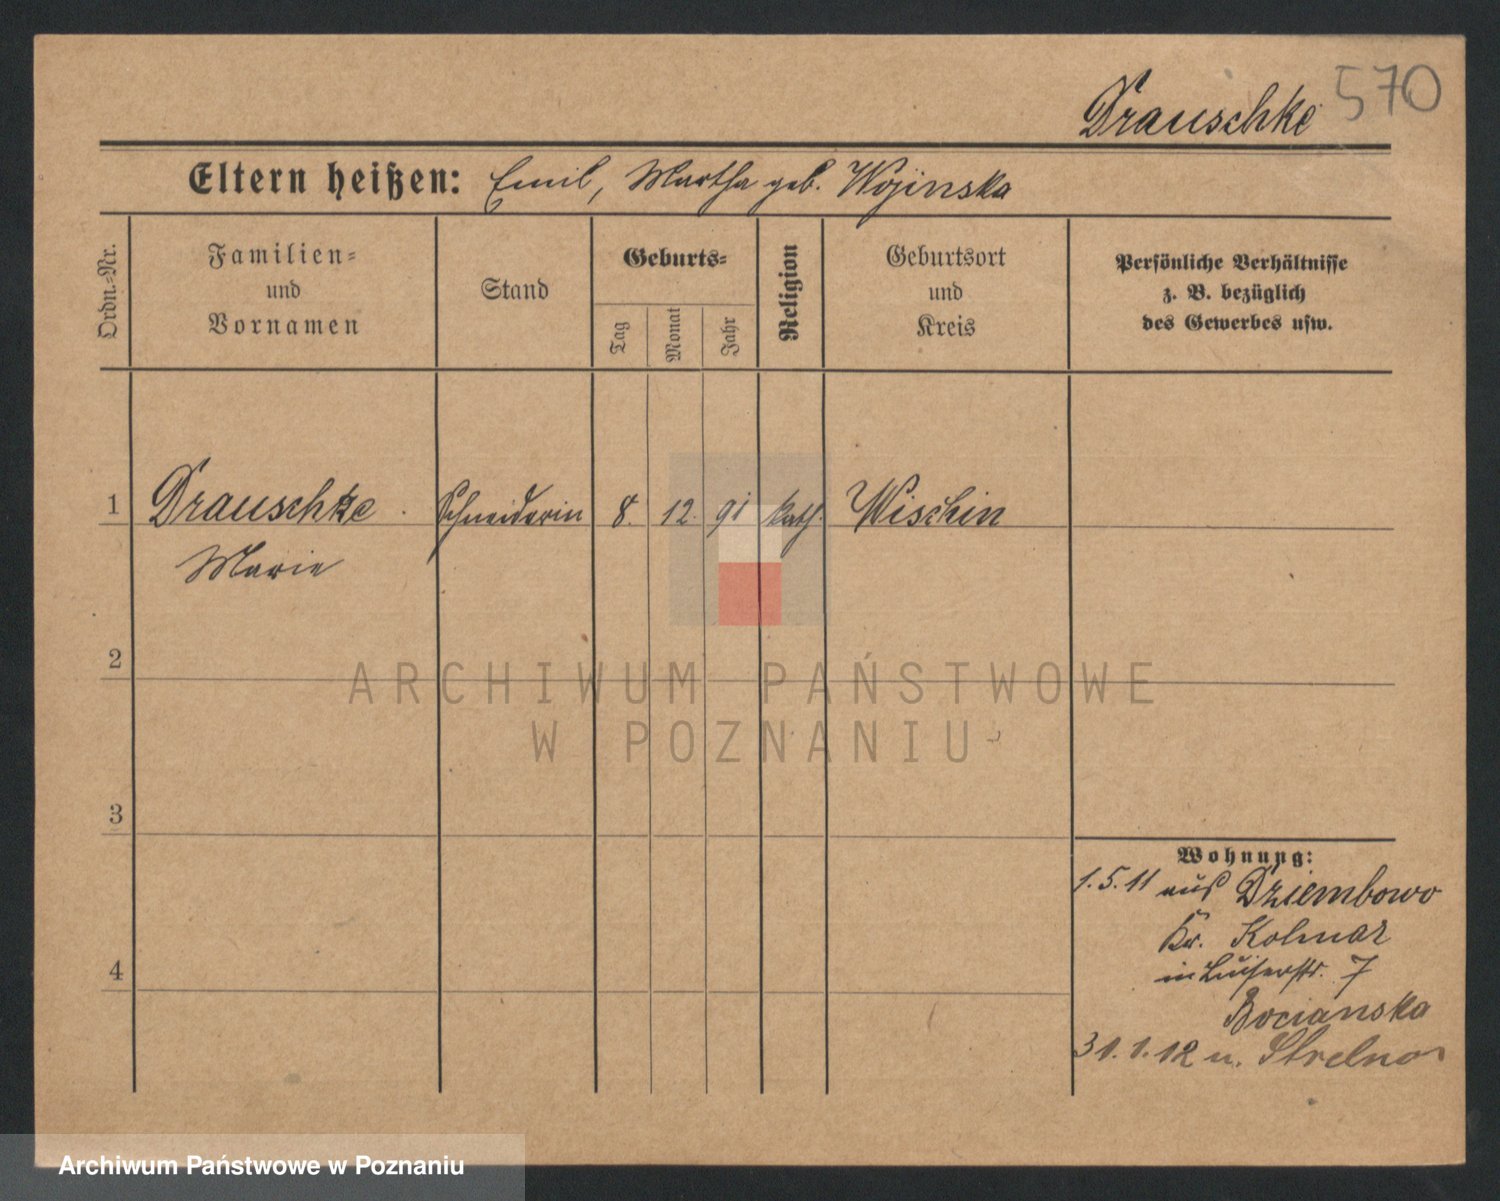 570
Drauschke
Eltern heißen: Emil, Martha geb. Wojinska
Ordn.-Nr.
Familien-
und
Vornamen
Stand
Geburts-
Tag
Monat
Jahr
Religion
Geburtsort
und
Kreis
Persönliche Verhältnisse
z. B. bezüglich
des Gewerbes usw.
1 Drauschke Schneiderin 8. 12. 91 kath. Wischin
Marie
2
3
4
Wohnung:
1.5.11 aus Dziembowo
Kr. Kolmar
in Luisenstr. 7
Bocianska
31.1.12 n. Strelno
ARCHIWUM PAŃSTWOWE
W POZNANIU
Archiwum Państwowe w Poznaniu